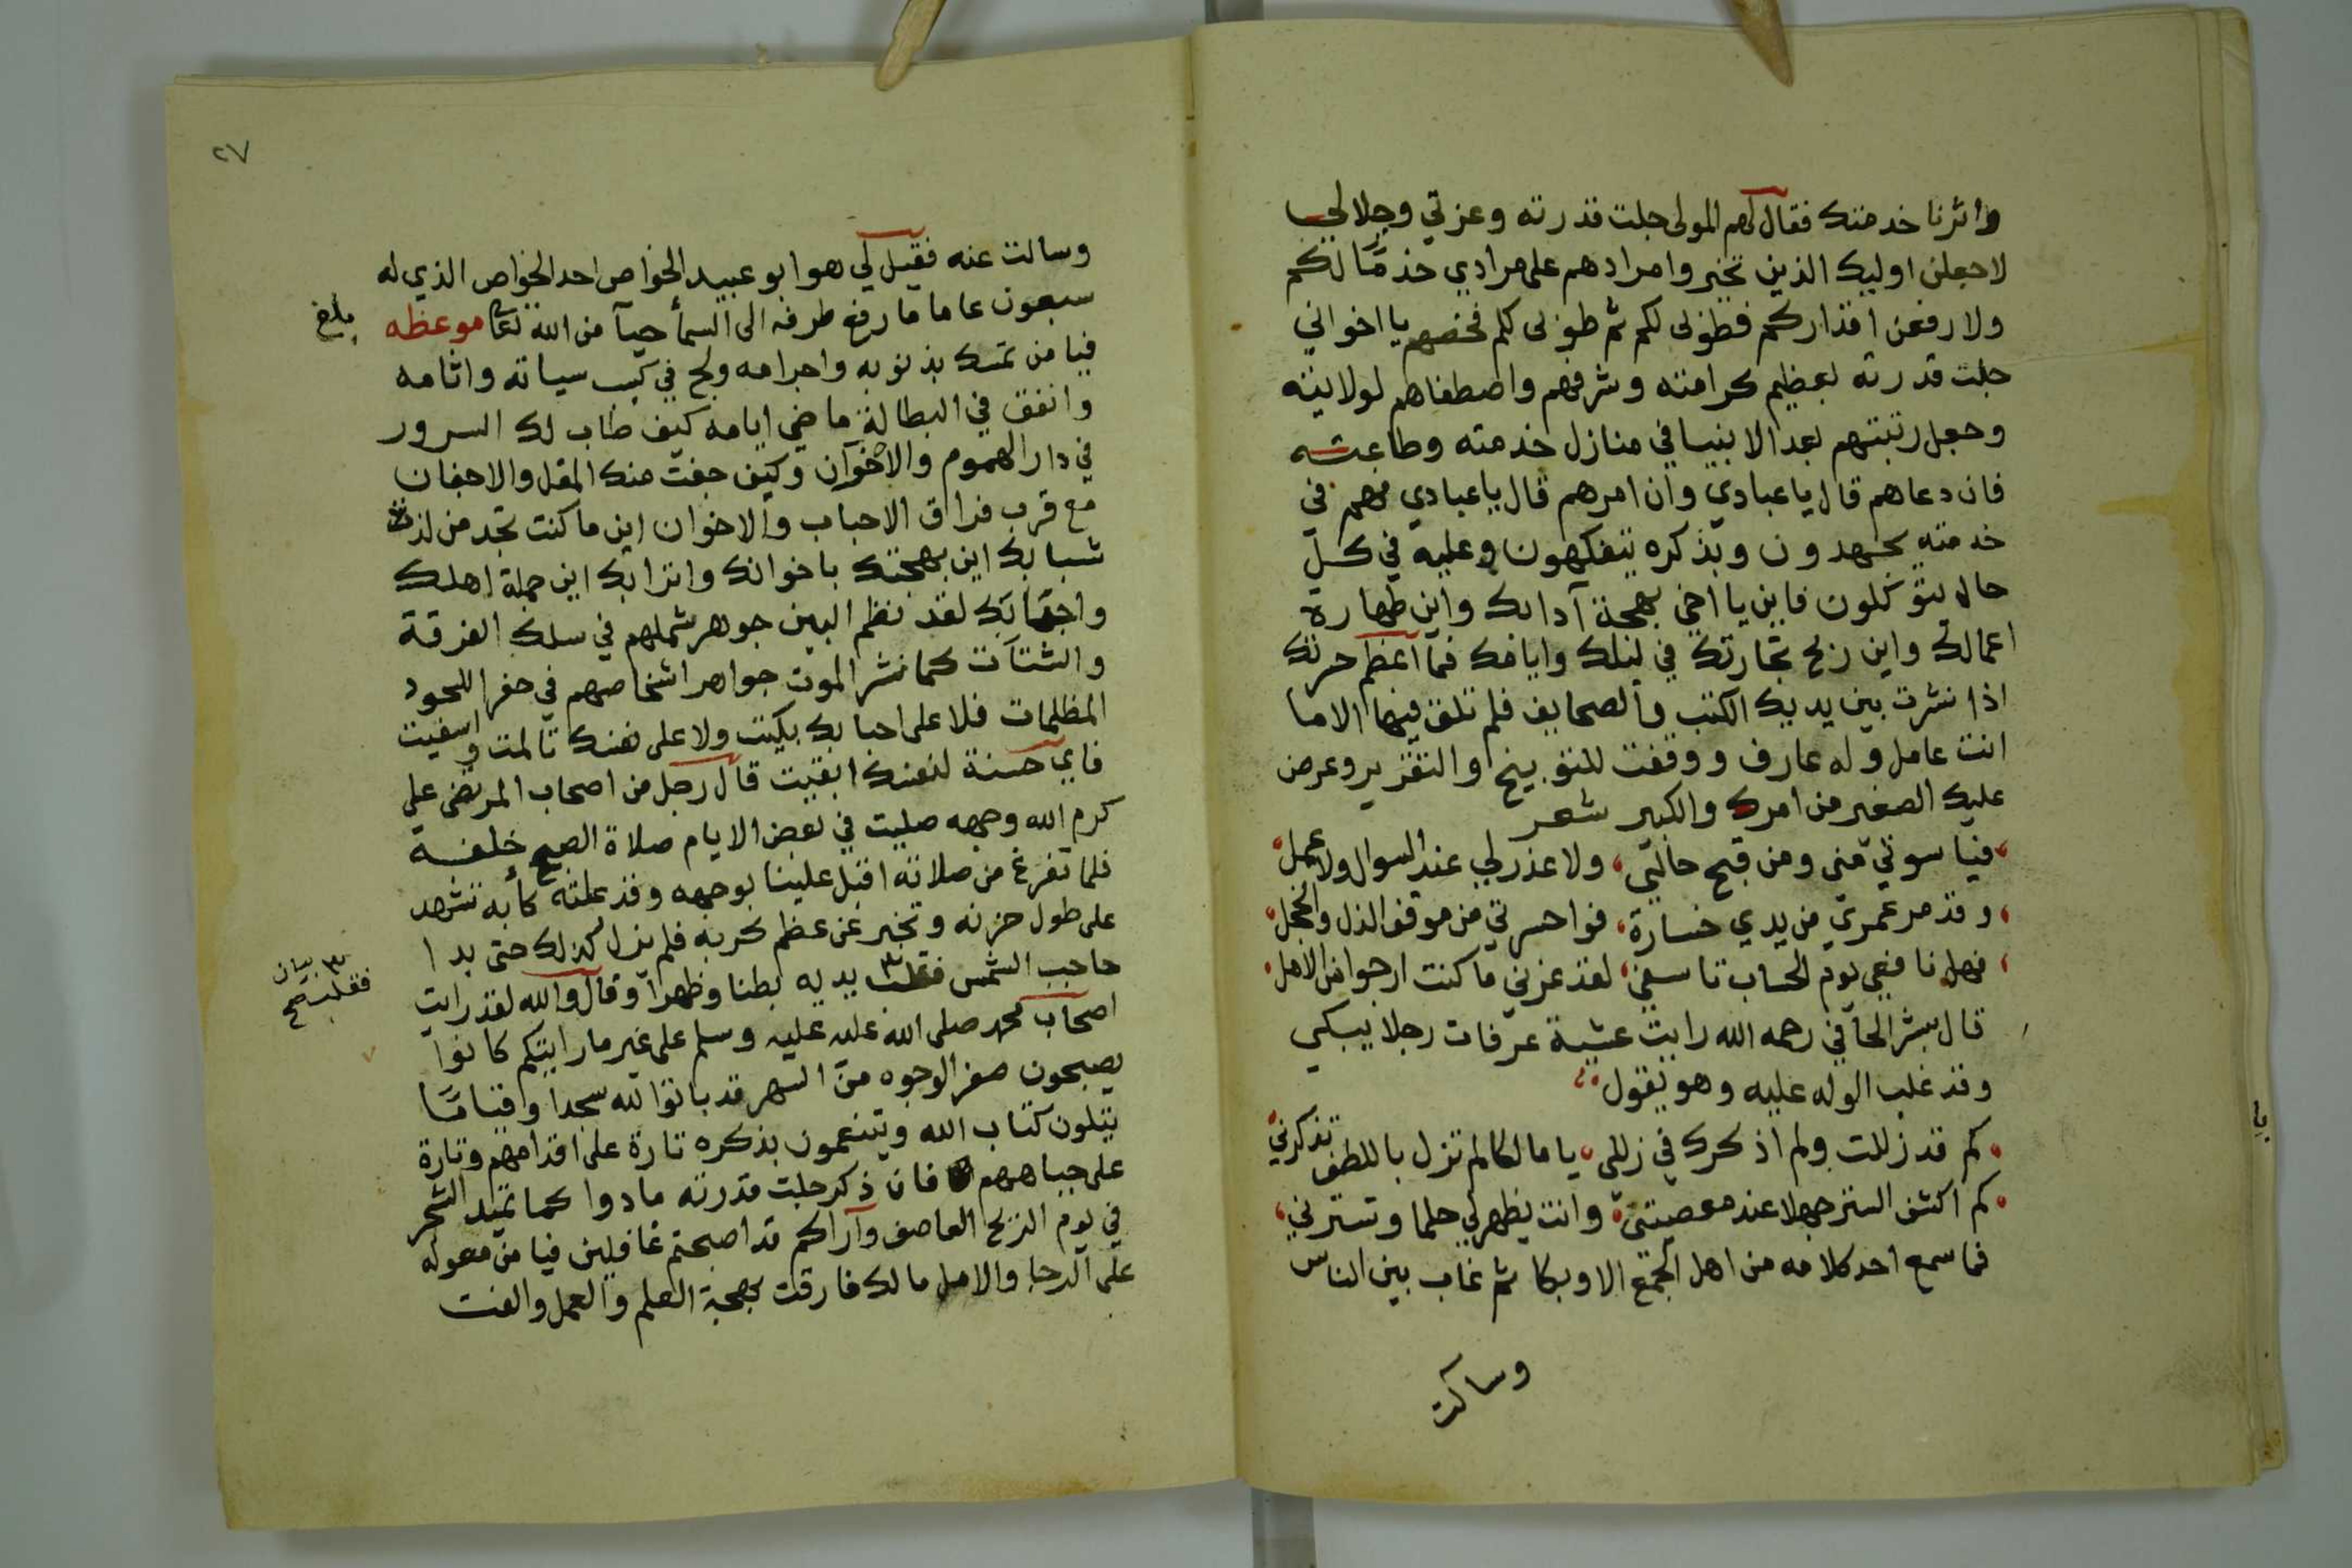 واثرنا خدمتك فقال لهم المولى جلت قدرته وعزتي وجلالي
لاجعلن اوليك الذين تخيروا مرادهم على مرادي خدمًا لكم
ولارفعن اقداركم فطوبى لكم ثم طوبى لكم فخصهم يا اخواني
جلت قدرته بعظيم كرامته وشرفهم واصطفاهم لولايته
وجعل رتبتهم بعد الانبيا في منازل خدمته وطاعته
فان دعاهم قال يا عبادي وان امرهم قال يا عبادي فهم في
خدمته يجهدون وبذكره يتفكهون وعليه في كل
حال يتوكلون فاين يا اخي بهجة آدابك واين طهارة
اعمالك واين ربح تجارتك في ليلك وايامك فما اعظم حزنك
اذا نشرت بين يديك الكتب والصحايف فلم تلق فيها الا ما
انت عامل وله عارف ووقفت للتوبيخ والتقرير وعرض
عليك الصغير من امرك والكبير شعر
فيا سوتي مني ومن قبح حالتي، ولا عذر لي عند السوال ولا عمل
وقد مر عمري من يدي خسارة، فواحسرتي من موقف الذل والخجل
فهل نافعي يوم الحساب تاسفي، لقد غرني ما كنت ارجوا من الامل
قال بشر الحافي رحمه الله رايت عشية عرفات رجلا يبكي
وقد غلب الوله عليه وهو يقول
كم قد زللت ولم اذكرك في زللي، يا مالكا لم تزل باللطف تذكرني
كم اكشف الستر جهلا عند معصيتي، وانت تظهر لي حلما وتسترني
فما سمع احد كلامه من اهل الجمع الا وبكا ثم غاب بين الناس
وسالت
٢٧
وسالت عنه فقيل لي هو ابو عبيد الخواص احد الخواص الذي له
سبعون عاما ما رفع طرفه الى السمأ حيآ من الله تعا موعظه
بلغ
فيا من تمسك بذنوبه واجرامه ولج في كسب سياته واثامه
وانفق في البطالة ماضي ايامه كيف طاب لك السرور
في دار الهموم والاخوان وكيف جفت منك المقل والاجفان
مع قرب فراق الاحباب والاخوان اين ما كنت تجد من لذة
شبابك اين بهجتك باخوانك واترابك اين جملة اهلك
واحبابك لقد نظم البين جوهر شملهم في سلك الفرقة
والشتات كما نشر الموت جواهر اشخاصهم في حفر اللحود
المظلمات فلا على احبابك بكيت ولا على نفسك تالمت واسفيت
فاي حسنة لنفسك ابقيت قال رجل من اصحاب المرتضى على
كرم الله وجهه صليت في بعض الايام صلاة الصبح خلفه
فلما تفرغ من صلاته اقبل علينا بوجهه وقد علته كأبة تشهد
على طول حزنه وتخبر عن عظم كربه فلم يزل كذلك حتى بدا
حاجب الشمس فقلب يديه بطنا وظهرا وقال والله لقد رايت
بيان
فقلب صح
اصحاب محمد صلى الله عليه عليه وسلم على غير ما رايتكم كانوا
يصبحون صفر الوجوه من السهر قد باتوا لله سجدا وقيامًا
يتلون كتاب الله ويتنعمون بذكره تارة على اقدامهم وتارة
على جباههم فان ذكر جلت قدرته مادوا كما تميد الشجر
في يوم الريح العاصف وآراكم قد اصبحتم غافلين فيا من معوله
على الرجا والامل مالك فارقت بهجة العلم والعمل والفت